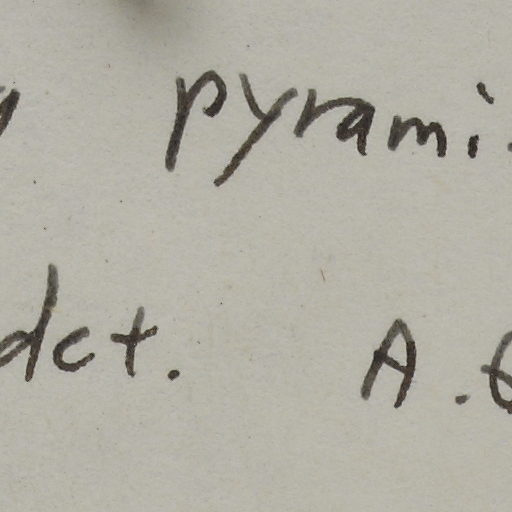 pyrami
det. A.